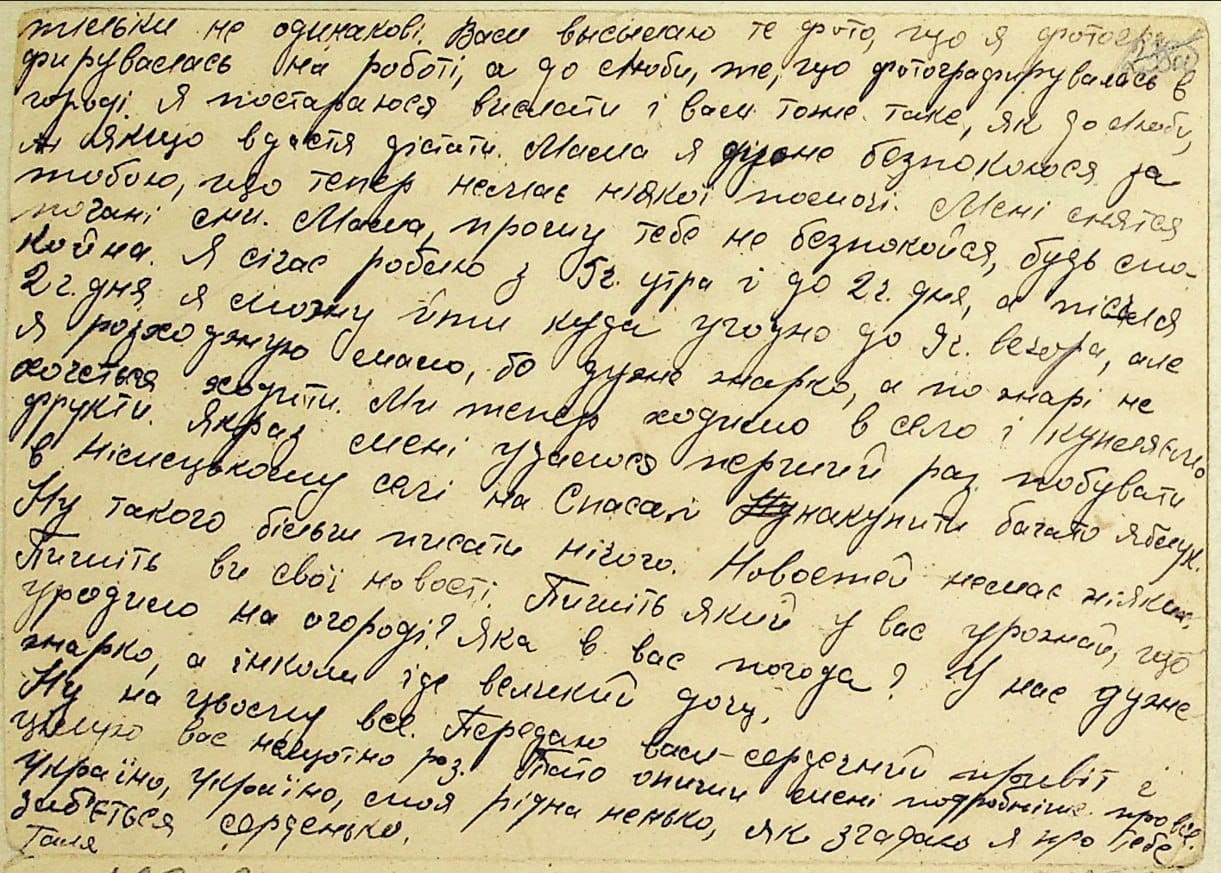 тільки не одинакові. Вам висилаю те фото, що я фотогра-
фирувалась на роботі, а до Люби, те, що фотографирувалась в
городі. Я постараюся вислати і вам тоже таке, як до Люби,
якщо вдастя дістати. Мама я дуже безпокоюся за
тобою, що тепер немає ніякої помочі. Мені снятся
погані сни. Мама, прошу тебе не безпокойся, будь спо-
койна. Я січас роблю з 5г. утра і до 2 г. дня, а після
2 г. дня я можу йти куда угодно до 9г. вечора, але
я розходжую мало, бо дуже жарко, а по жарі не
хочеться ходити. Ми тепер ходимо в село і купляємо
фрукти. Якраз мені удалося перший раз побувати
в німецькому селі на Спаса, і накупити багато яблук.
Ну такого більш писати нічого. Новостей немає ніяких.
Пишіть ви свої новості. Пишіть який у вас урожай, що
уродило на огороді? Яка в вас погода? У нас дуже
жарко, а інколи іде великий дощ.
Ну на цьому все. Передаю вам сердечний привіт і
цілую вас несщотно раз. Тато опиши мені подробніше про все.
Україно, Україно, моя рідна ненько, як згадаю я про тебе
заб'ється серденько.
Галя